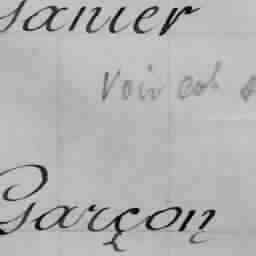 Janier
Voir col
Garçon